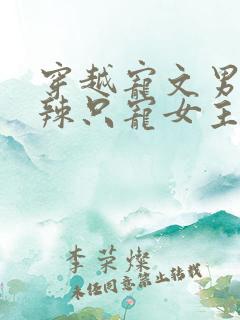 穿越寵文男
辣只寵女主
李荣燦
未经同意禁止转载